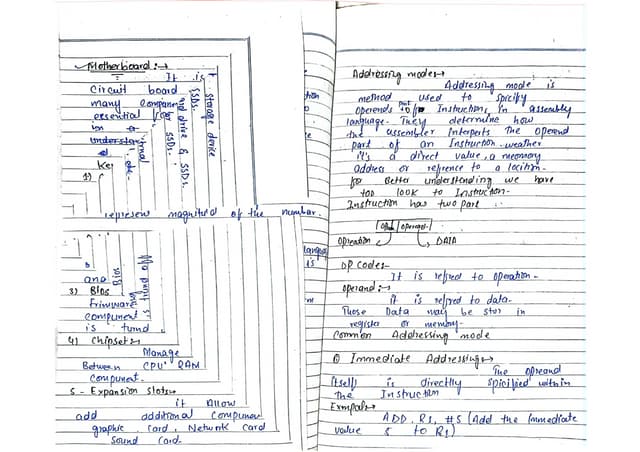 Motherboard :→
It is
Circuit board
many
essential for
in
understa
Key
1)
represen magnitud of the number.
ana
3) Bios
Frimware
component
is tund
4) Chipset→
Manage
Between CPU' RAM
Component.
5 - Expansion Slots→
it Allow
add additional Componen
graphic Card, Network Card
Sound Card.
t Storage device
hard drive & SSDs.
(SSDs.
Addressing modes→
Addressing mode is
method used to Spicify
operends of Instruction, in assembly
language. They determine how
the assembler Interpts The operend
part of an Instruction - weather
it's a direct value, a memory
Address or refrence to a location.
for Better understanding we have
too look to Instruction.
Instruction has two part.
operand
Opreation DATA
OP Code:-
It is refred to operation -
operand:→
it is refred to data.
Those Data may be stor in
register or memory.
Common Addressing mode
① Immediate Addressing→
The opreand
itself is directly Spicified within
The Instruction
Exmpal→
ADD, R1, #5 (Add the Immediate
value 5 to R1)